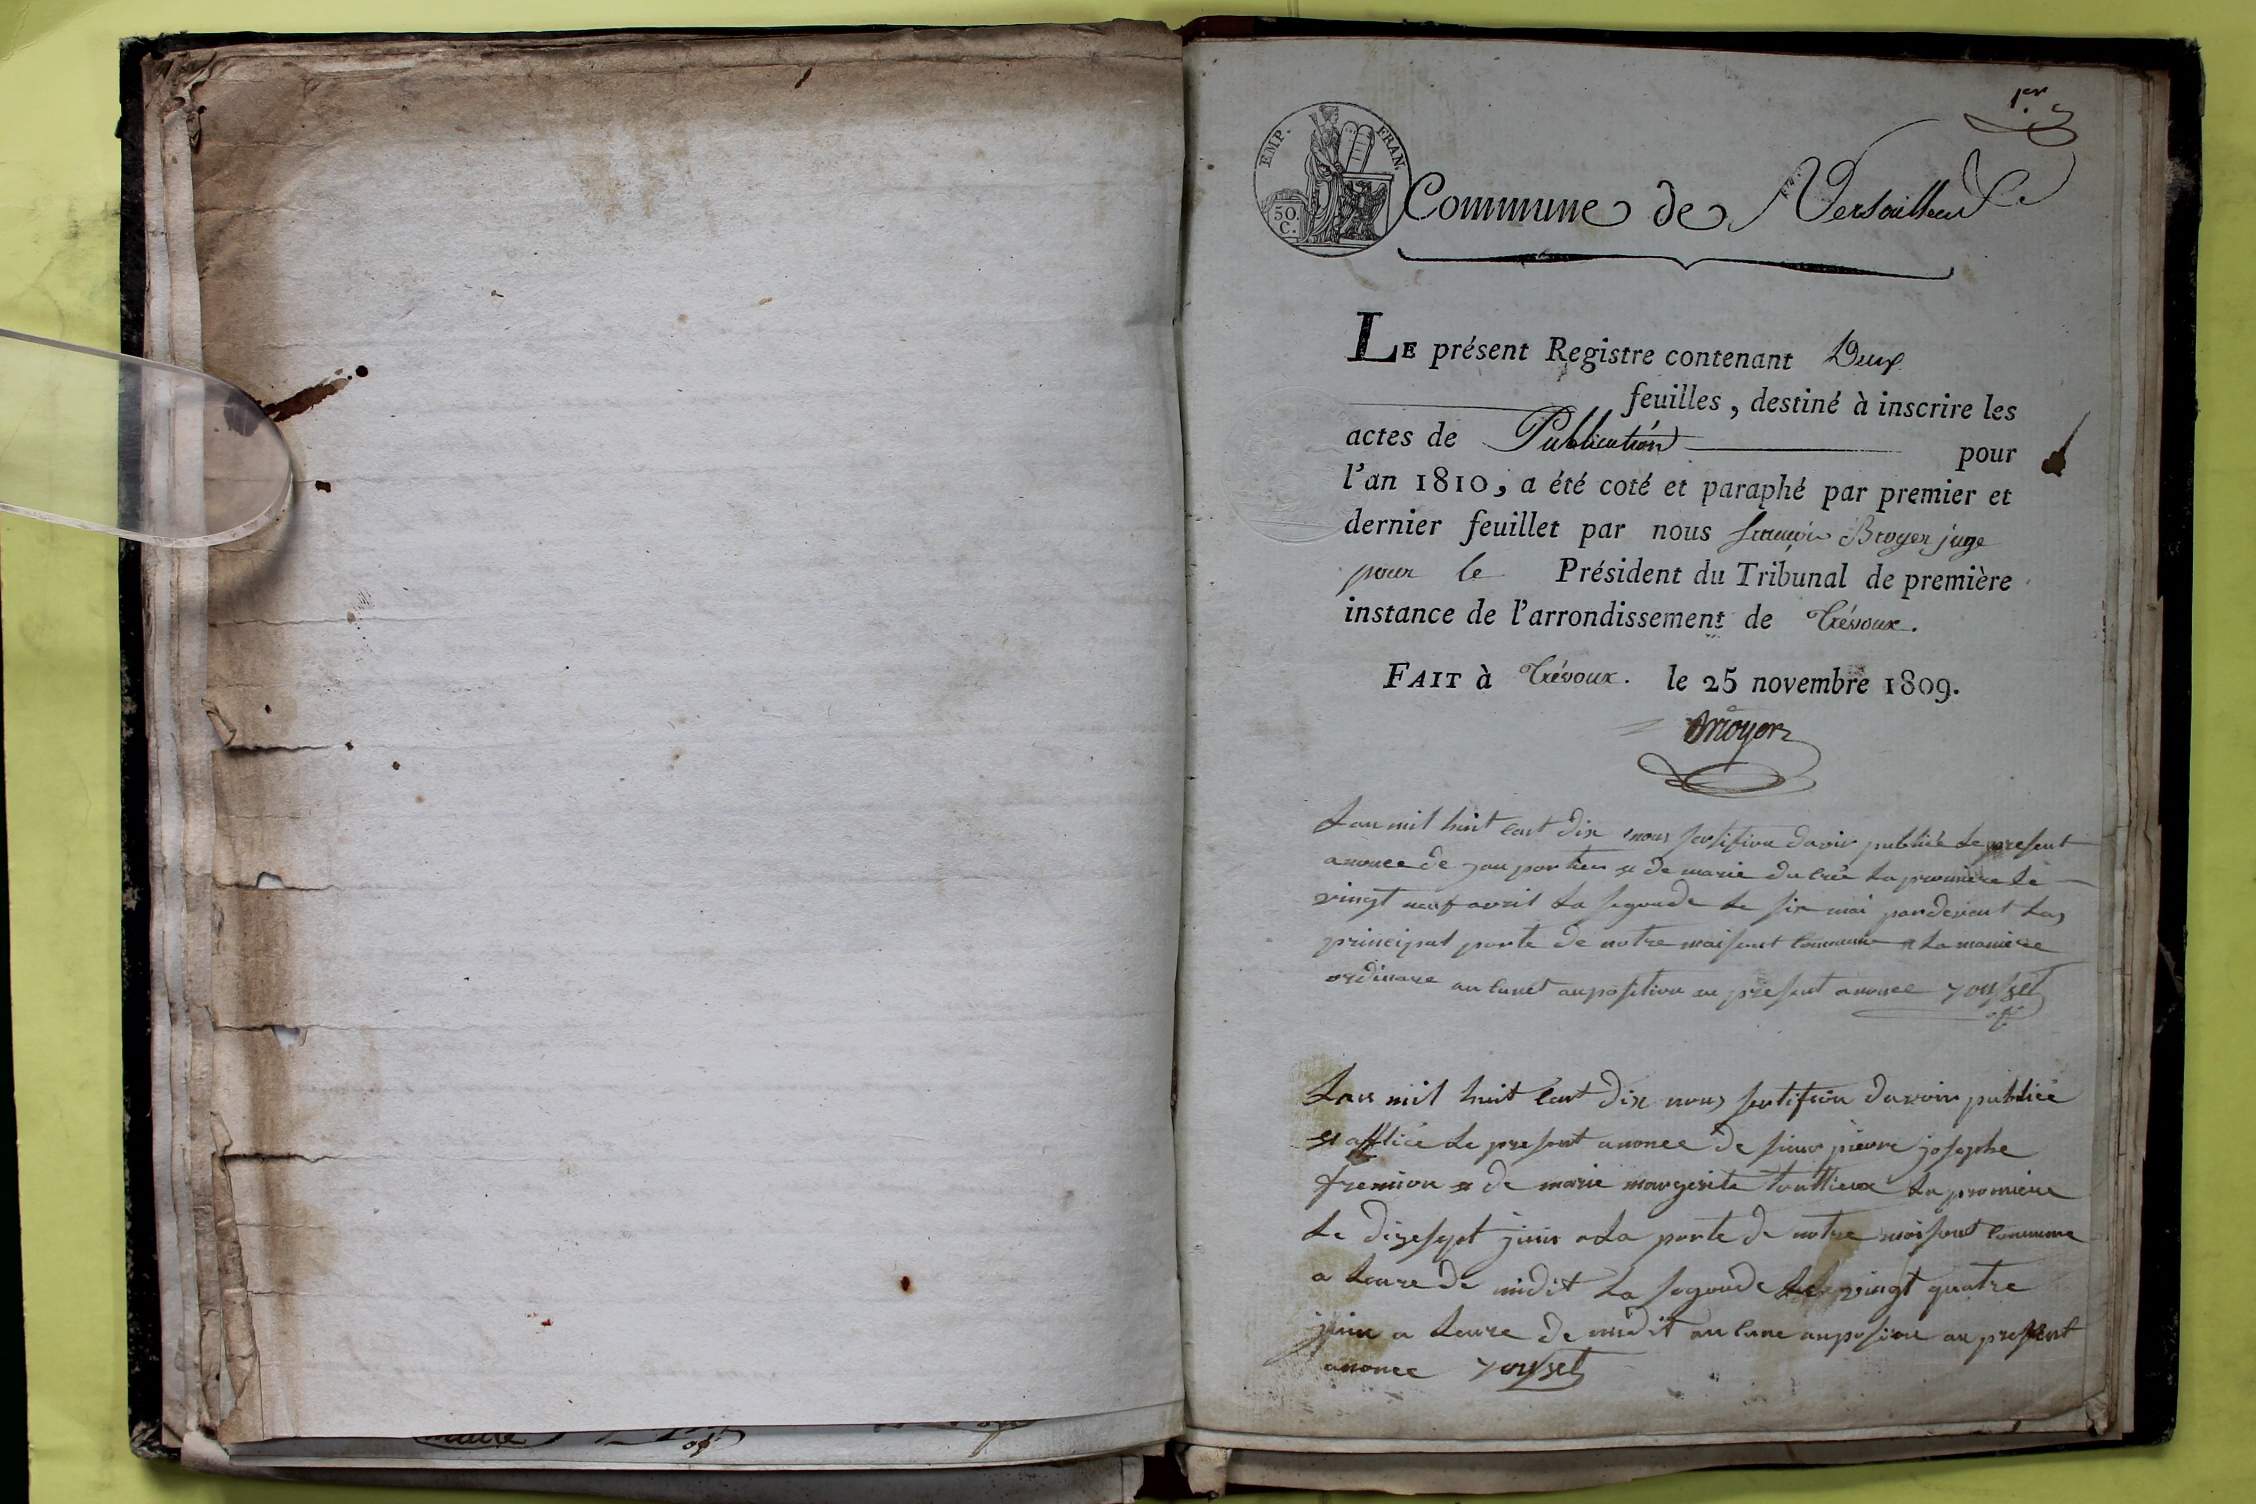 1er
EMP. FRAN.
50. C.
Commune de Versailleux
LE présent Registre contenant Deux
feuilles, destiné à inscrire les
actes de Publication pour
l'an 1810, a été coté et paraphé par premier et
dernier feuillet par nous françois Broyer juge
pour le Président du Tribunal de première
instance de l'arrondissement de Trévoux.
FAIT à Trévoux. le 25 novembre 1809.
Broyer
Lan mil huit cent dix nous sertifion davoir publiée Le present
anonce de et de marie La premiere le
vingt neuf avril La segonde Le six mai pardevent La
principal porte de notre maisont commune a La maniere
ordinaire au cunet auposition au present anonce
Lan mil huit cent dix nous sertifion davoir publiée
et afficé Le present anonce de sieur pierre josephe
fremion et de marie margerite La premiere
Le dixesept juin a La porte de notre maisont commune
a Leure de midit La segonde Le vingt quatre
juin a Leure de midit au cune auposion au present
anonce